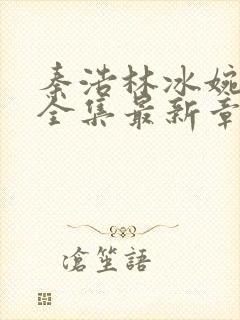 秦浩林冰婉
全集最新章
滄笙語